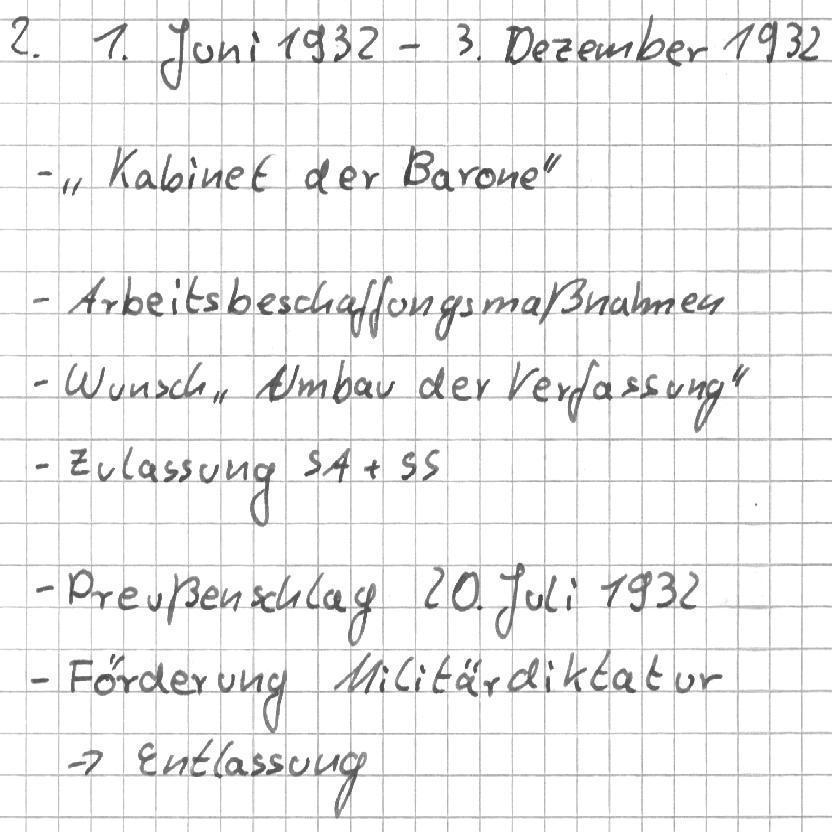 2. 1. Juni 1932 - 3. Dezember 1932
- „Kabinet der Barone"
- Arbeitsbeschaffungsmaßnahmen
- Wunsch „Umbau der Verfassung"
- Zulassung SA + SS
- Preußenschlag 20. Juli 1932
- Förderung Militärdiktatur
→ Entlassung